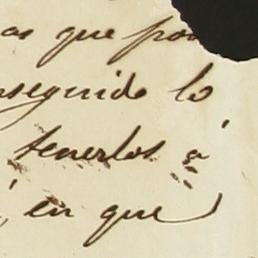 as que po
nseguido lo
tenerlos á
, en que